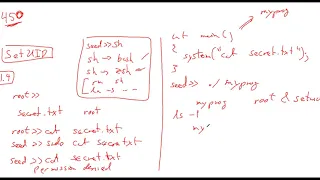 450
SetUID
1.4
root>>
secret.txt root
root>> cat secret.txt
seed>> sudo cat secret.txt
seed>> cat secret.txt
permission denied
seed>>sh
sh → bash
sh → zsh
rm sh
ln -s --
myprog
int main()
{
system("cat secret.txt");
}
seed>> ./myprog
myprog root & setuid
ls -l
my